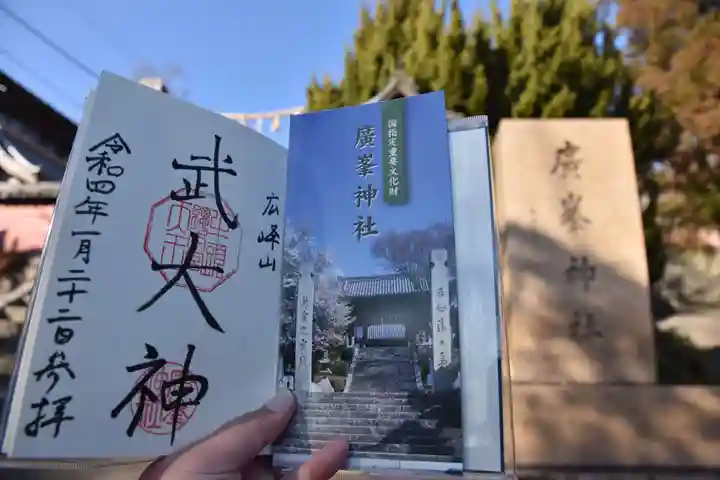 広峰山
武大神
令和四年一月二十二日参拝
国指定重要文化財
廣峯神社
廣峯神社